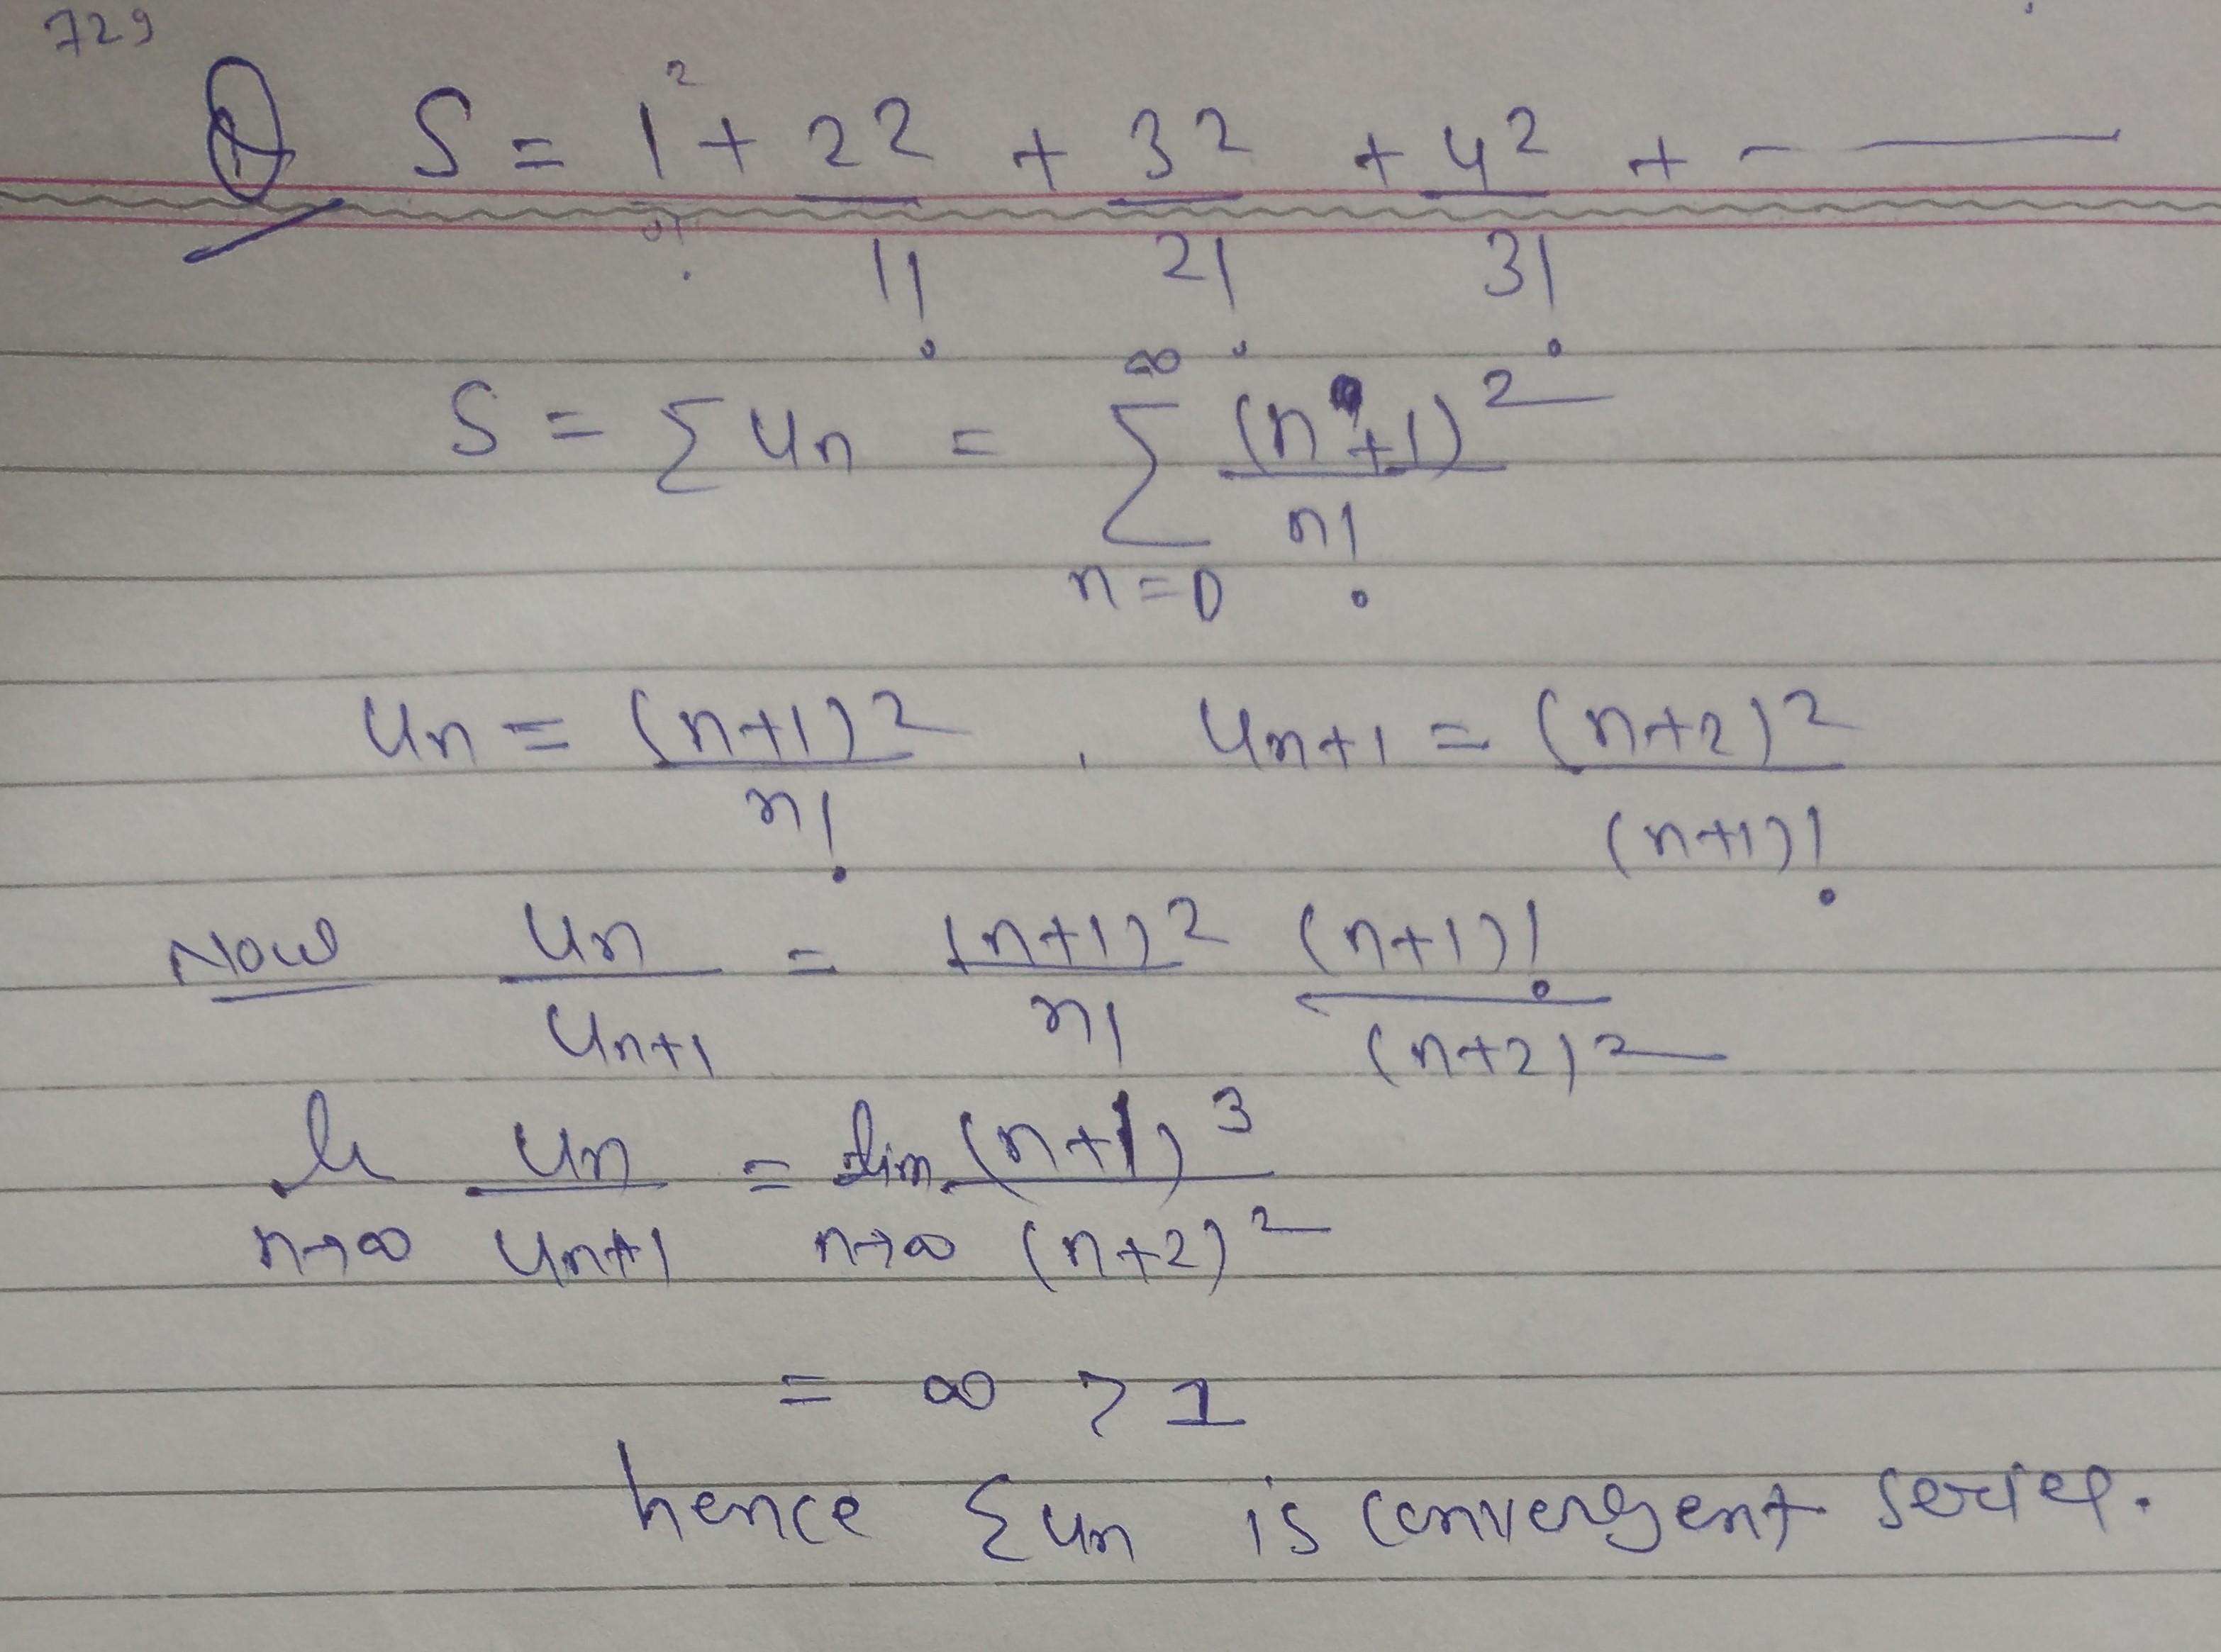 729
Q S = 1² + 2²/1! + 3²/2! + 4²/3! + - —
S = Σ un = ∞ Σ n=0 (n+1)²/n!
un = (n+1)²/n! , un+1 = (n+2)²/(n+1)!
Now un/un+1 = (n+1)²/n! (n+1)!/(n+2)²
n→∞ un/un+1 = lim n→∞ (n+1)³/(n+2)²
= ∞ > 1
hence Σun is convergent series.